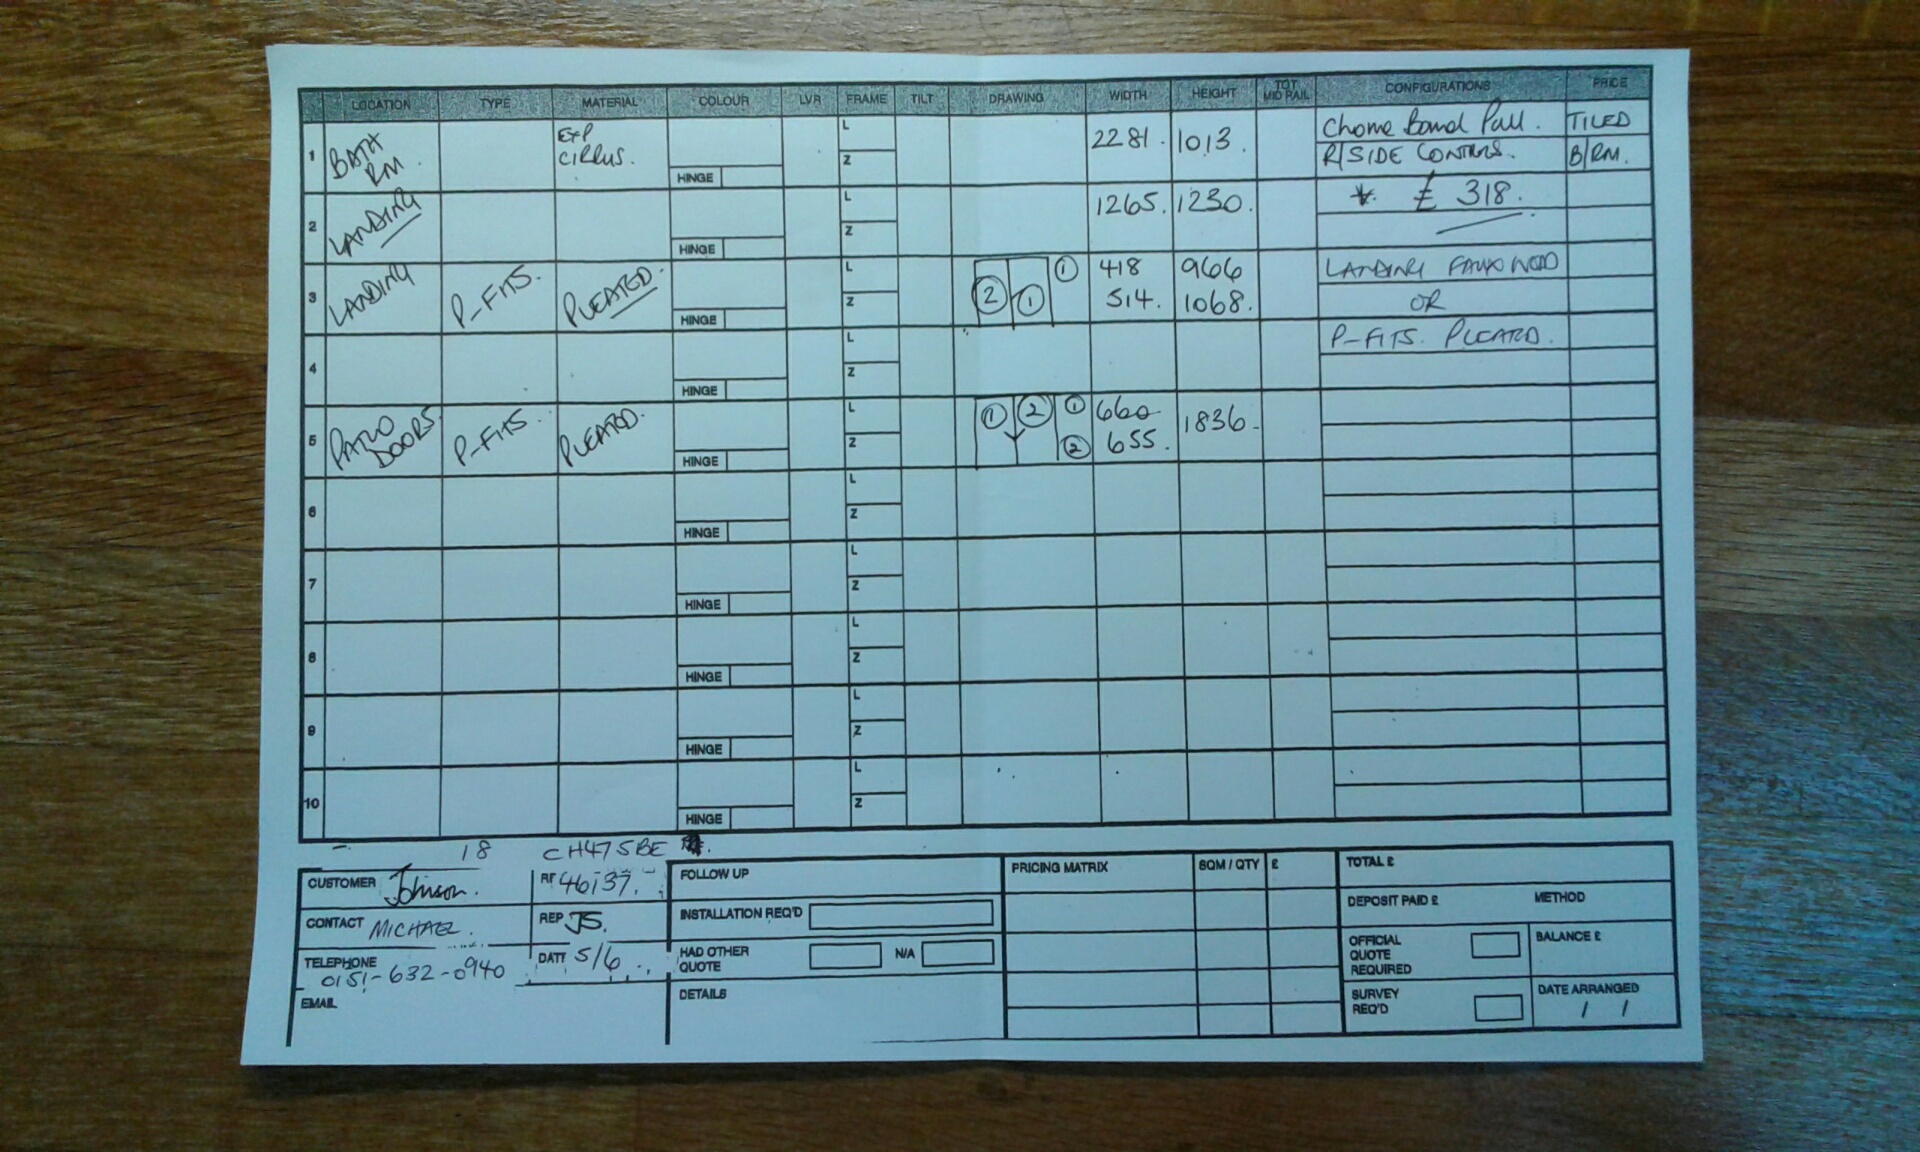 LOCATION TYPE MATERIAL COLOUR LVR FRAME TILT DRAWING WIDTH HEIGHT TOT MID RAIL CONFIGURATIONS PRICE
1 BATH RM. EXP CIRRUS. HINGE L Z 2281. 1013. Chome Bomd Pull. TILED
R/SIDE CONTROLS. B/RM.
2 LANDING HINGE L Z 1265. 1230. * £ 318.
3 LANDING P-FITS. PLEATED. HINGE L Z 2 1 1 418 966 LANDING FAUX WOOD
514. 1068. OR
4 HINGE L Z P-FITS. PLEATED.
5 PATIO DOORS. P-FITS. PLEATED. HINGE L Z 1 2 1 660 1836.
2 655.
6 HINGE L Z
7 HINGE L Z
8 HINGE L Z
9 HINGE L Z
10 HINGE L Z
18 CH47 5BE
CUSTOMER Johnson. 46137.
CONTACT MICHAEL. REP JS.
TELEPHONE 0151-632-0940 5/6
EMAIL
FOLLOW UP
INSTALLATION REQ'D
HAD OTHER QUOTE N/A
DETAILS
PRICING MATRIX SQM / QTY £
TOTAL £
DEPOSIT PAID £ METHOD
OFFICIAL QUOTE REQUIRED BALANCE £
SURVEY REQ'D DATE ARRANGED
/ /